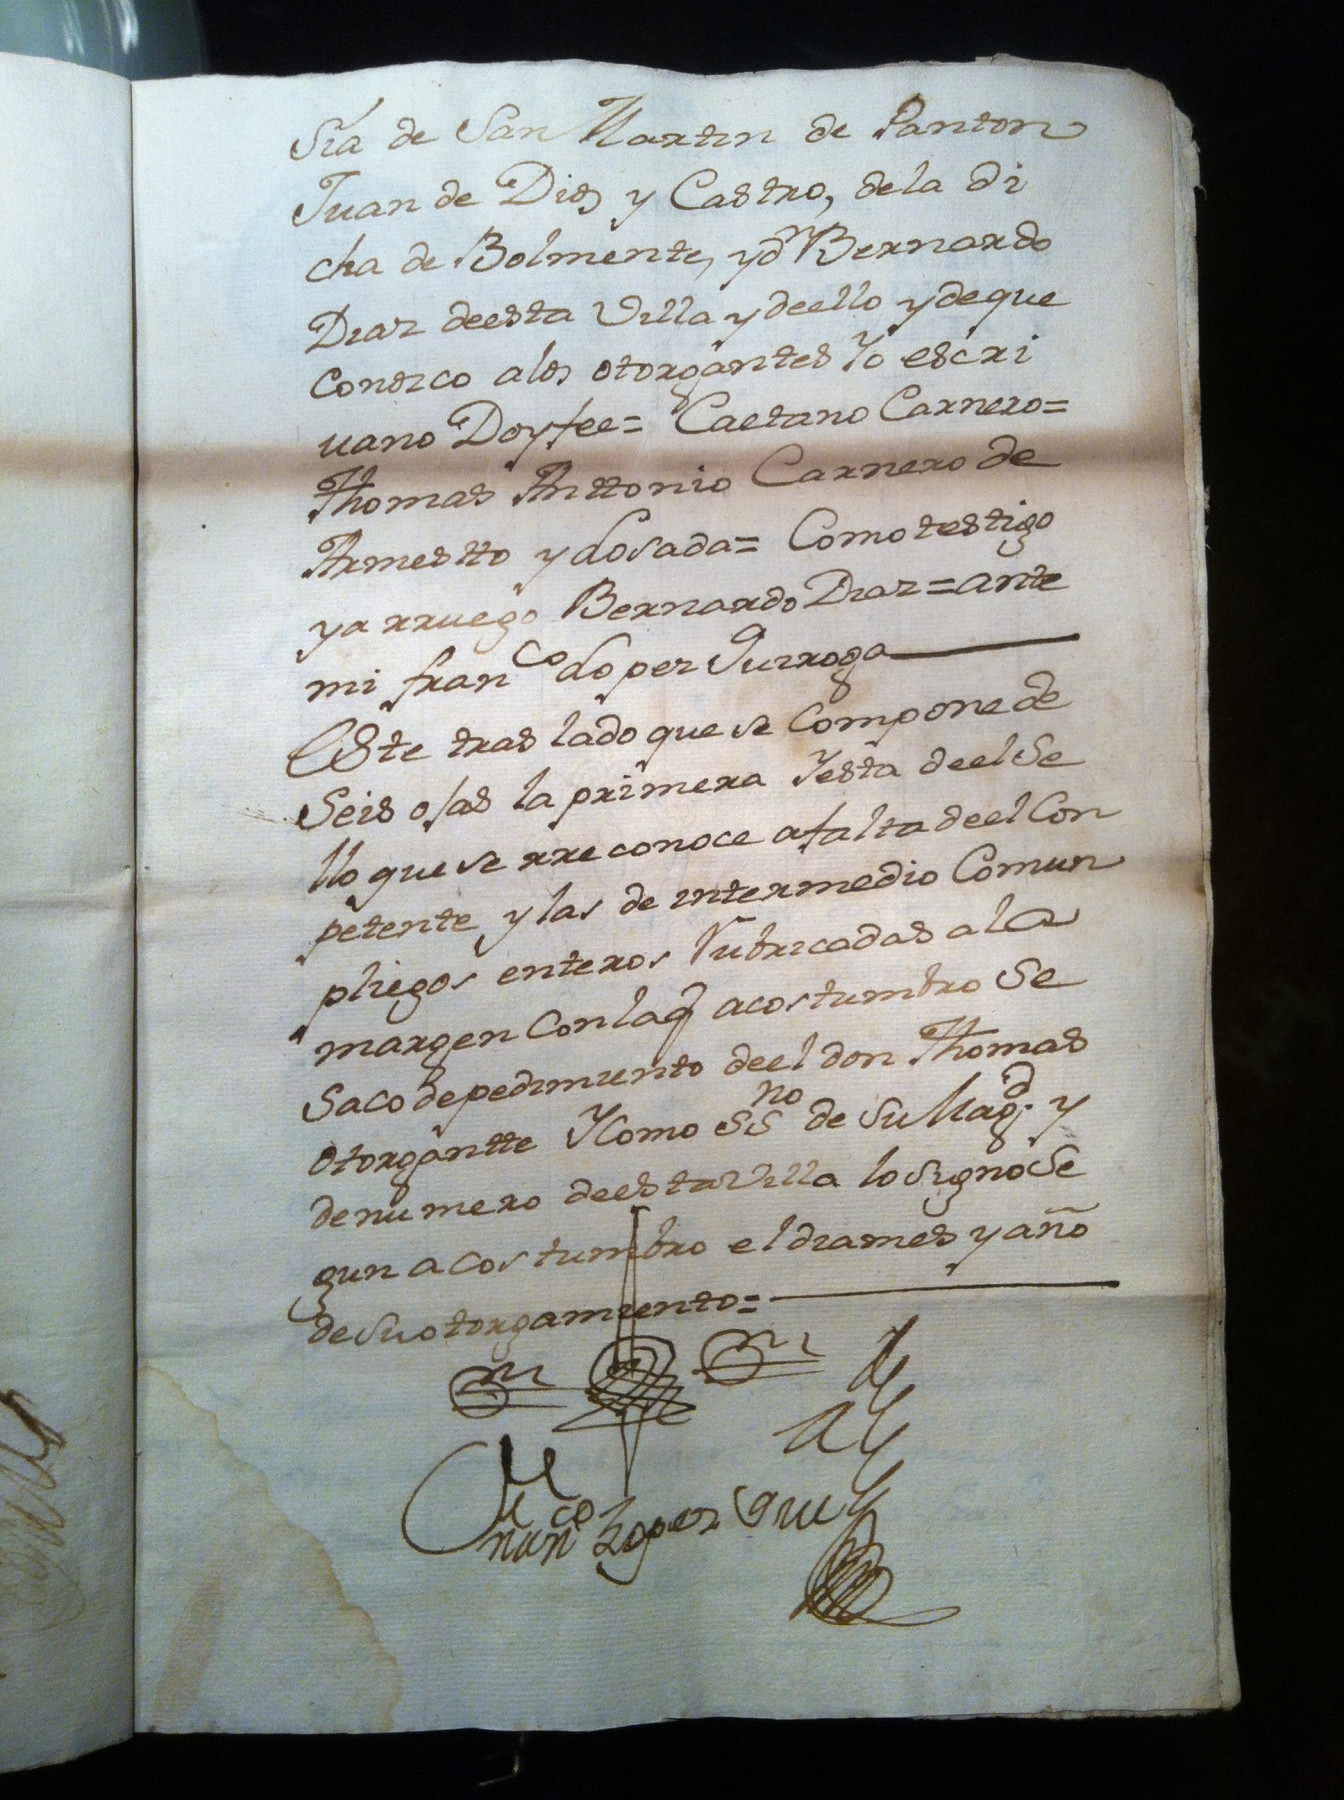 sia de San Martin de Panton
Juan de Dios y Castro, dela di
cha de Bolmente, y dn Bernardo
Diaz deesta Villa y deello y de que
conozco alos otorgantes Yo escri
uano Doyfee= Caetano Carnero=
Thomas Anttonio Carnero de
Armestto y Losada= Como testigo
y a rruego Bernardo Diaz= ante
mi franco Lopez Quiroga
Este traslado que se compone de
Seis ojas la primera Yesta deel Se
llo que se rreconoce afalta deel Con
petente y las de intermedio Comun
pliegos enteros Rubricadas ala
margen Con la q acostumbro Se
saco de pedimiento deel don Thomas
otorgantte Ycomo SSno de su Magd. y
de numero deesta Villa lo signo Se
gun acostumbro el dia mes y año
de su otorgamiento=
Franco Lopez